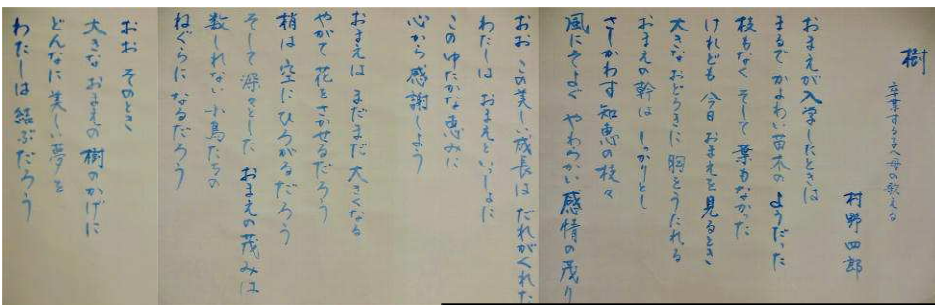 樹
卒業する子へ母の歌える
村野四郎
おまえが入学したときは
まるで かよわい苗木の ようだった
枝もなく そして 葉もなかった
けれども 今日 おまえを 見るとき
大きな おどろきに 胸をうたれる
おまえの幹は しっかりとし
さしかわす 知恵の枝々
風にそよぐ やわらかい 感情の茂り
おお この美しい成長は だれがくれた
わたしは おまえといっしょに
この ゆたかな 恵みに
心から 感謝しよう
おまえは まだまだ 大きくなる
やがて 花をさかせるだろう
梢は 空に ひろがるだろう
そして 深々とした おまえの茂みは
数しれない 小鳥たちの
ねぐらに なるだろう
おお そのとき
大きな おまえの 樹のかげに
どんなに 美しい 夢を
わたしは 結ぶだろう